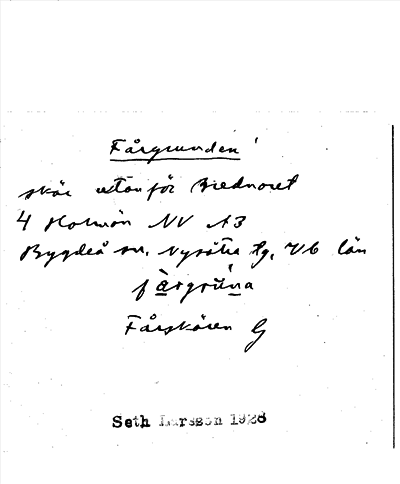 Fårgrunden
skär utanför Brednoret
4 Holmön NV A3
Bygdeå sn, Nysätra tg, Vb län
fårgrũna
Fårskären G
Seth Larsson 1928